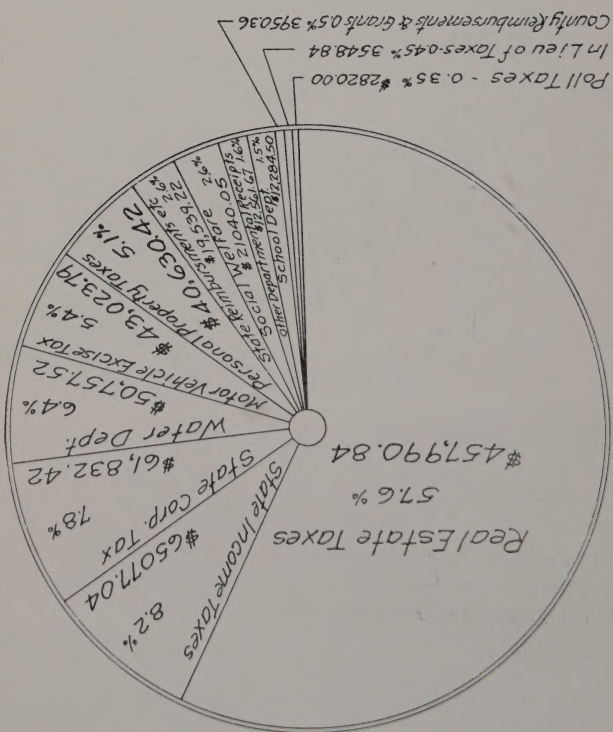 Real Estate Taxes
57.6%
$457,990.84
State Income Taxes
8.2%
$65077.04
State Corp. Tax
7.8%
$61,832.42
Water Dept.
6.4%
$50,757.52
Motor Vehicle Excise Tax
5.4%
$43,023.79
Personal Property Taxes
5.1%
$40,630.42
State Reimbursments etc
$19,539.22
Social Welfare 2.6%
$21040.05
Other Departmental Receipts
$12,561.67 1.6%
School Dept. 1.5%
$12,284.50
Poll Taxes - 0.35% $2820.00
In Lieu of Taxes-0.45% 3548.84
County Reimbursements & Grants 0.5% 3950.36